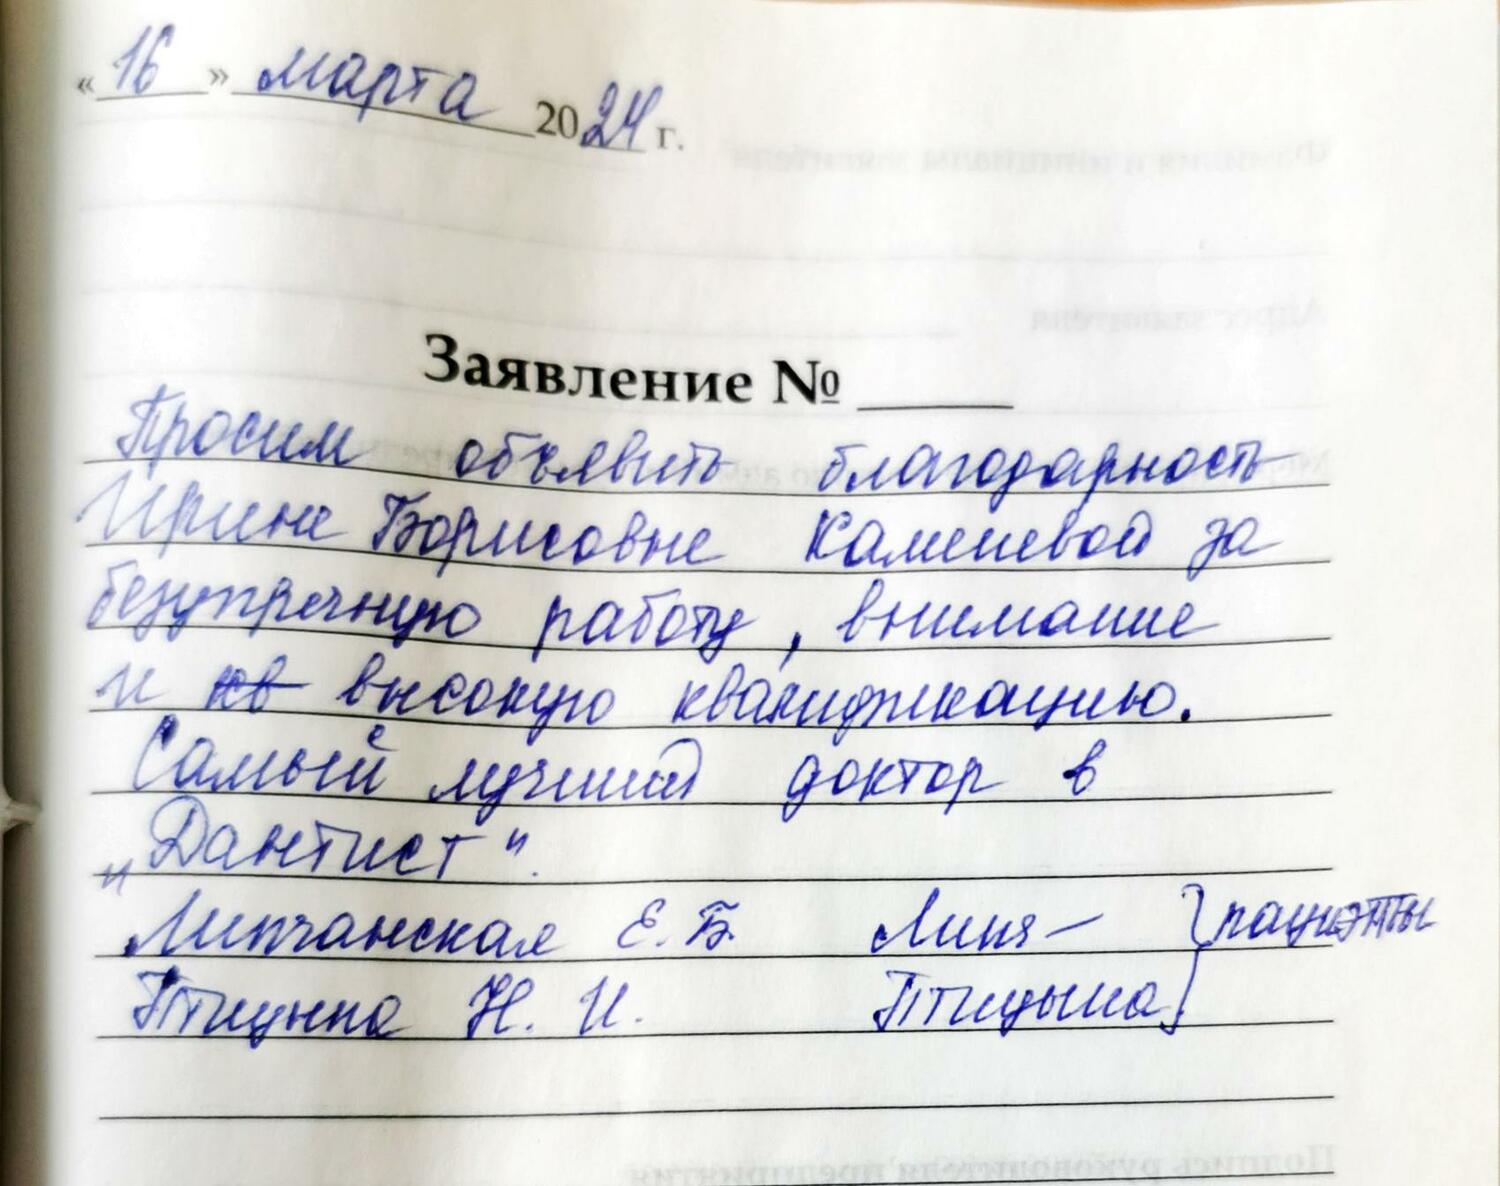 «16» марта 2024 г.
Заявление № ____
Просим объявить благодарность
Ирине Борисовне Каменевой за
безупречную работу, внимание
и кв высокую квалификацию.
Самый лучший доктор в
„Дантист".
Липчанская Е. Б. Липч— } пациэнты
Птицына Н. И. Птицына